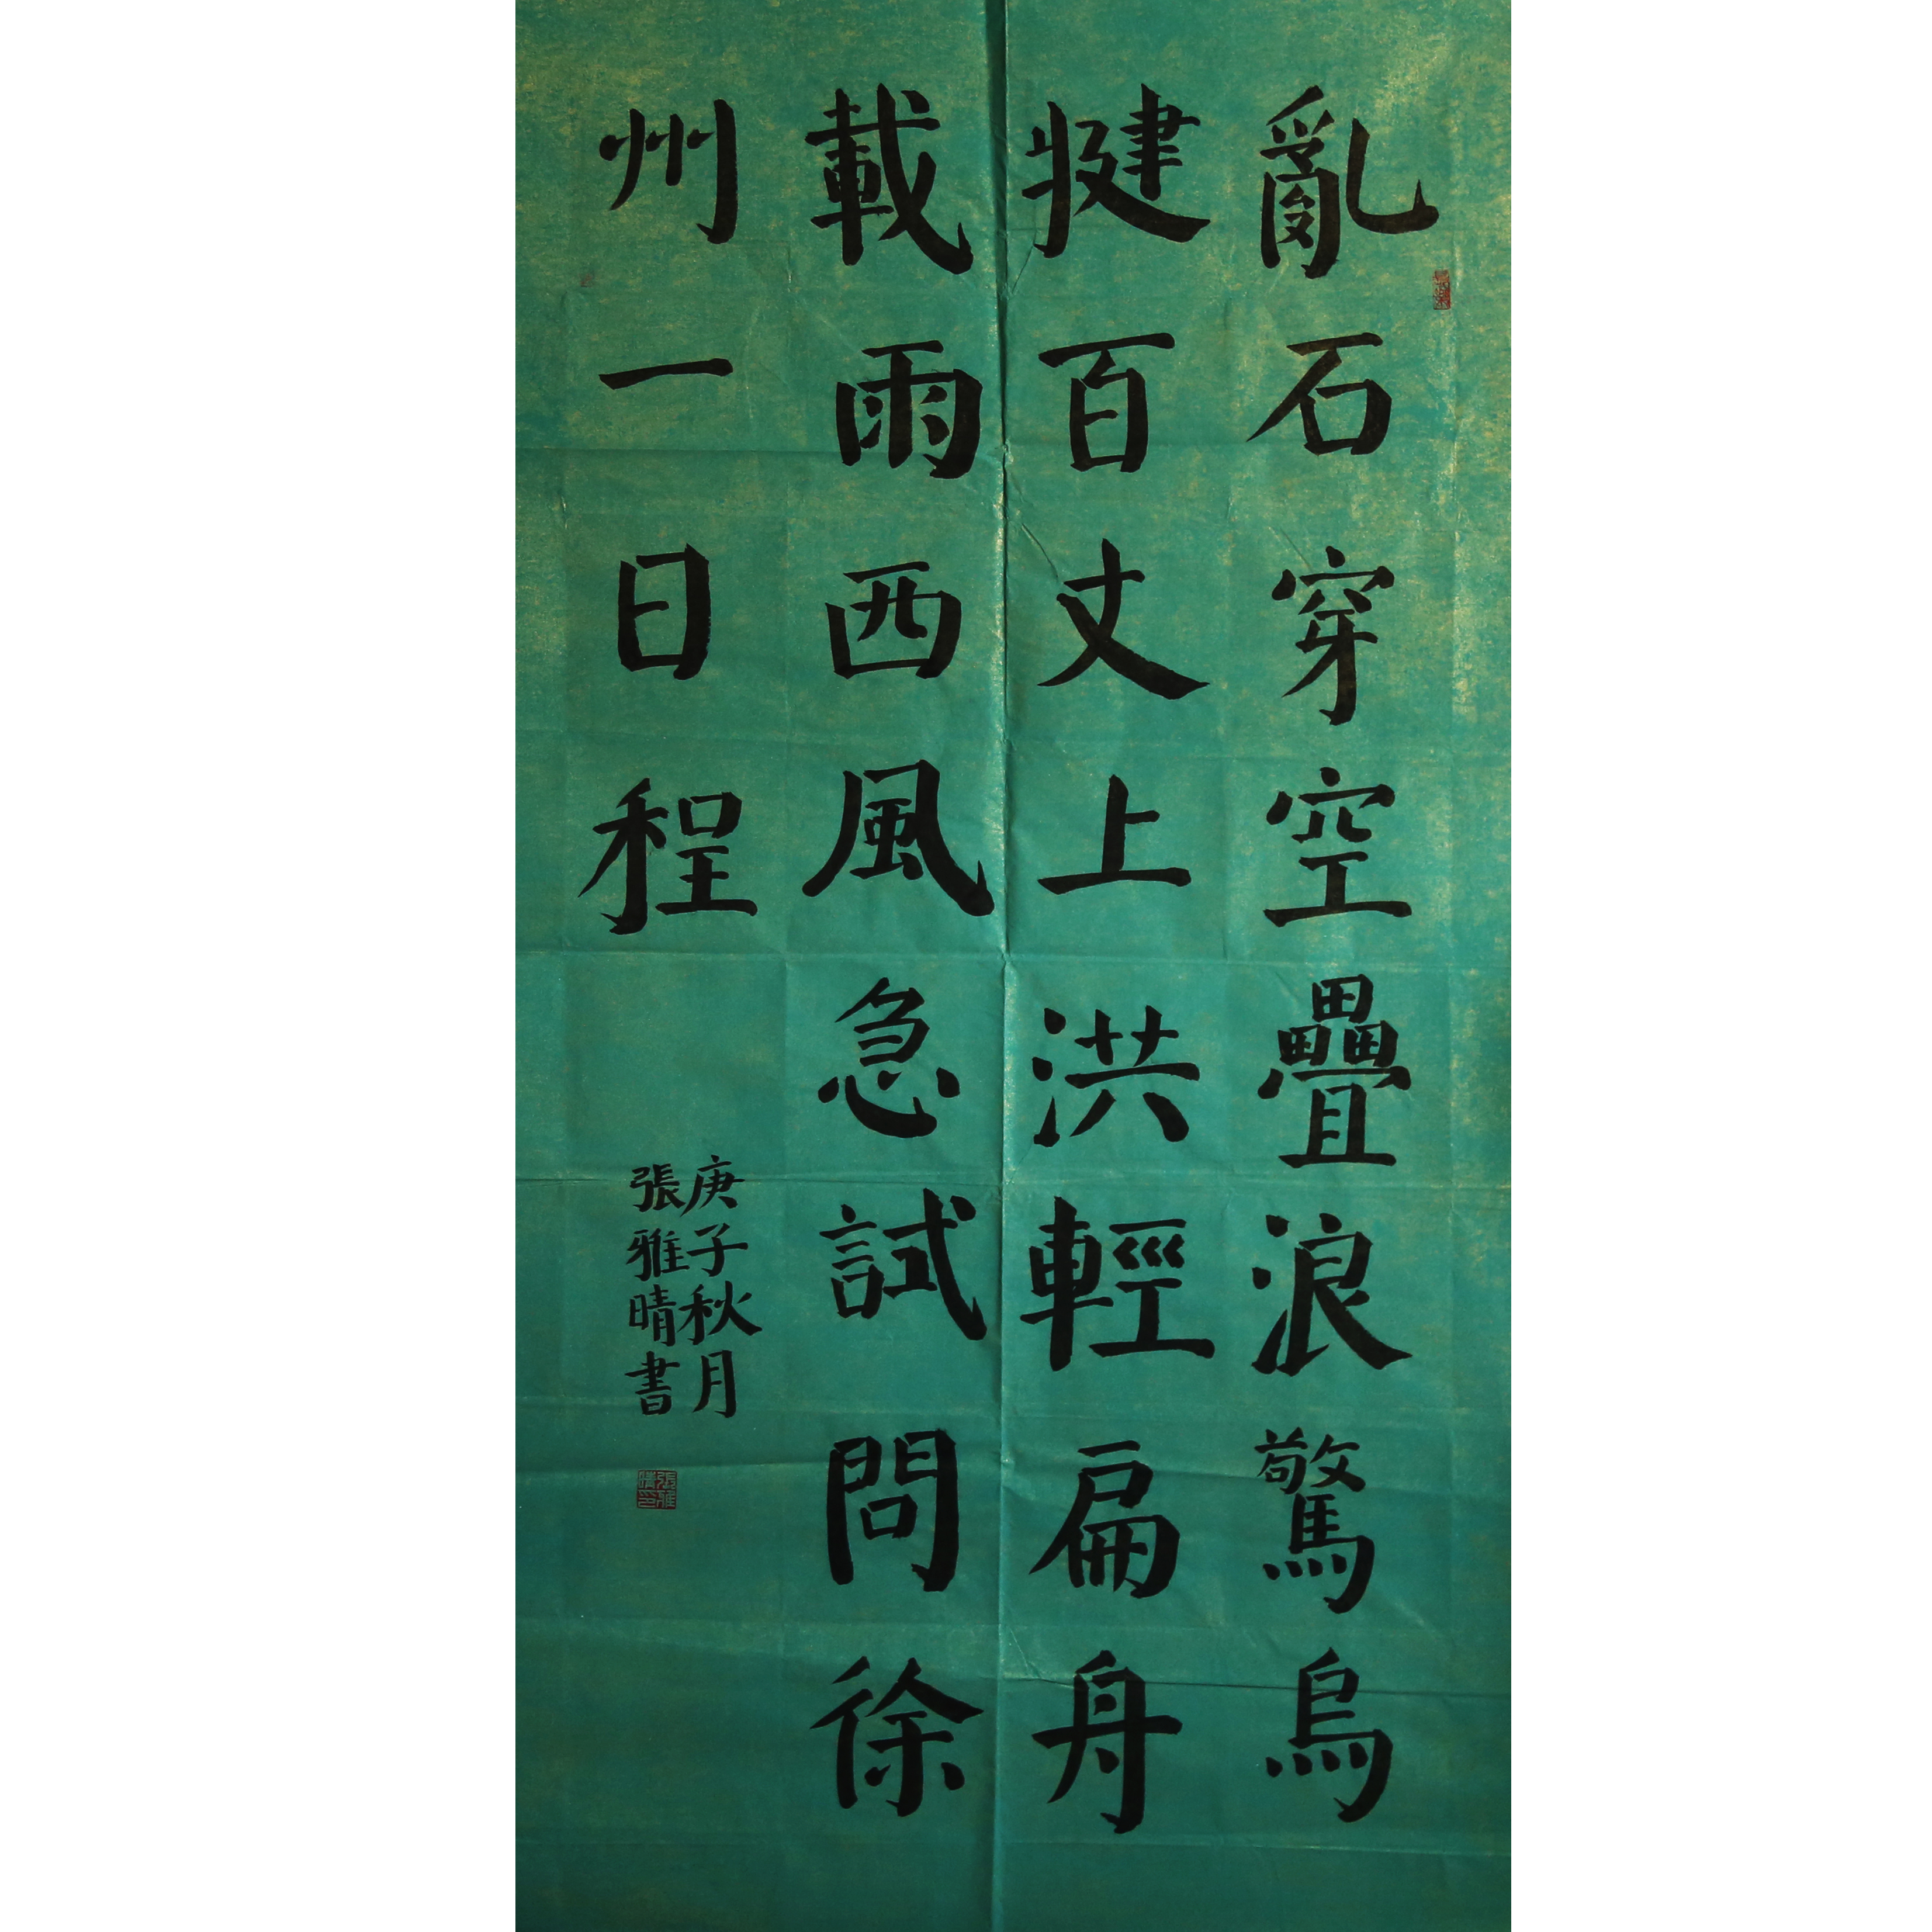 亂石穿空疊浪驚烏
犍百丈上洪輕扁舟
載雨西風急試問徐
州一日程
庚子秋月
張雅晴書
張雅晴印